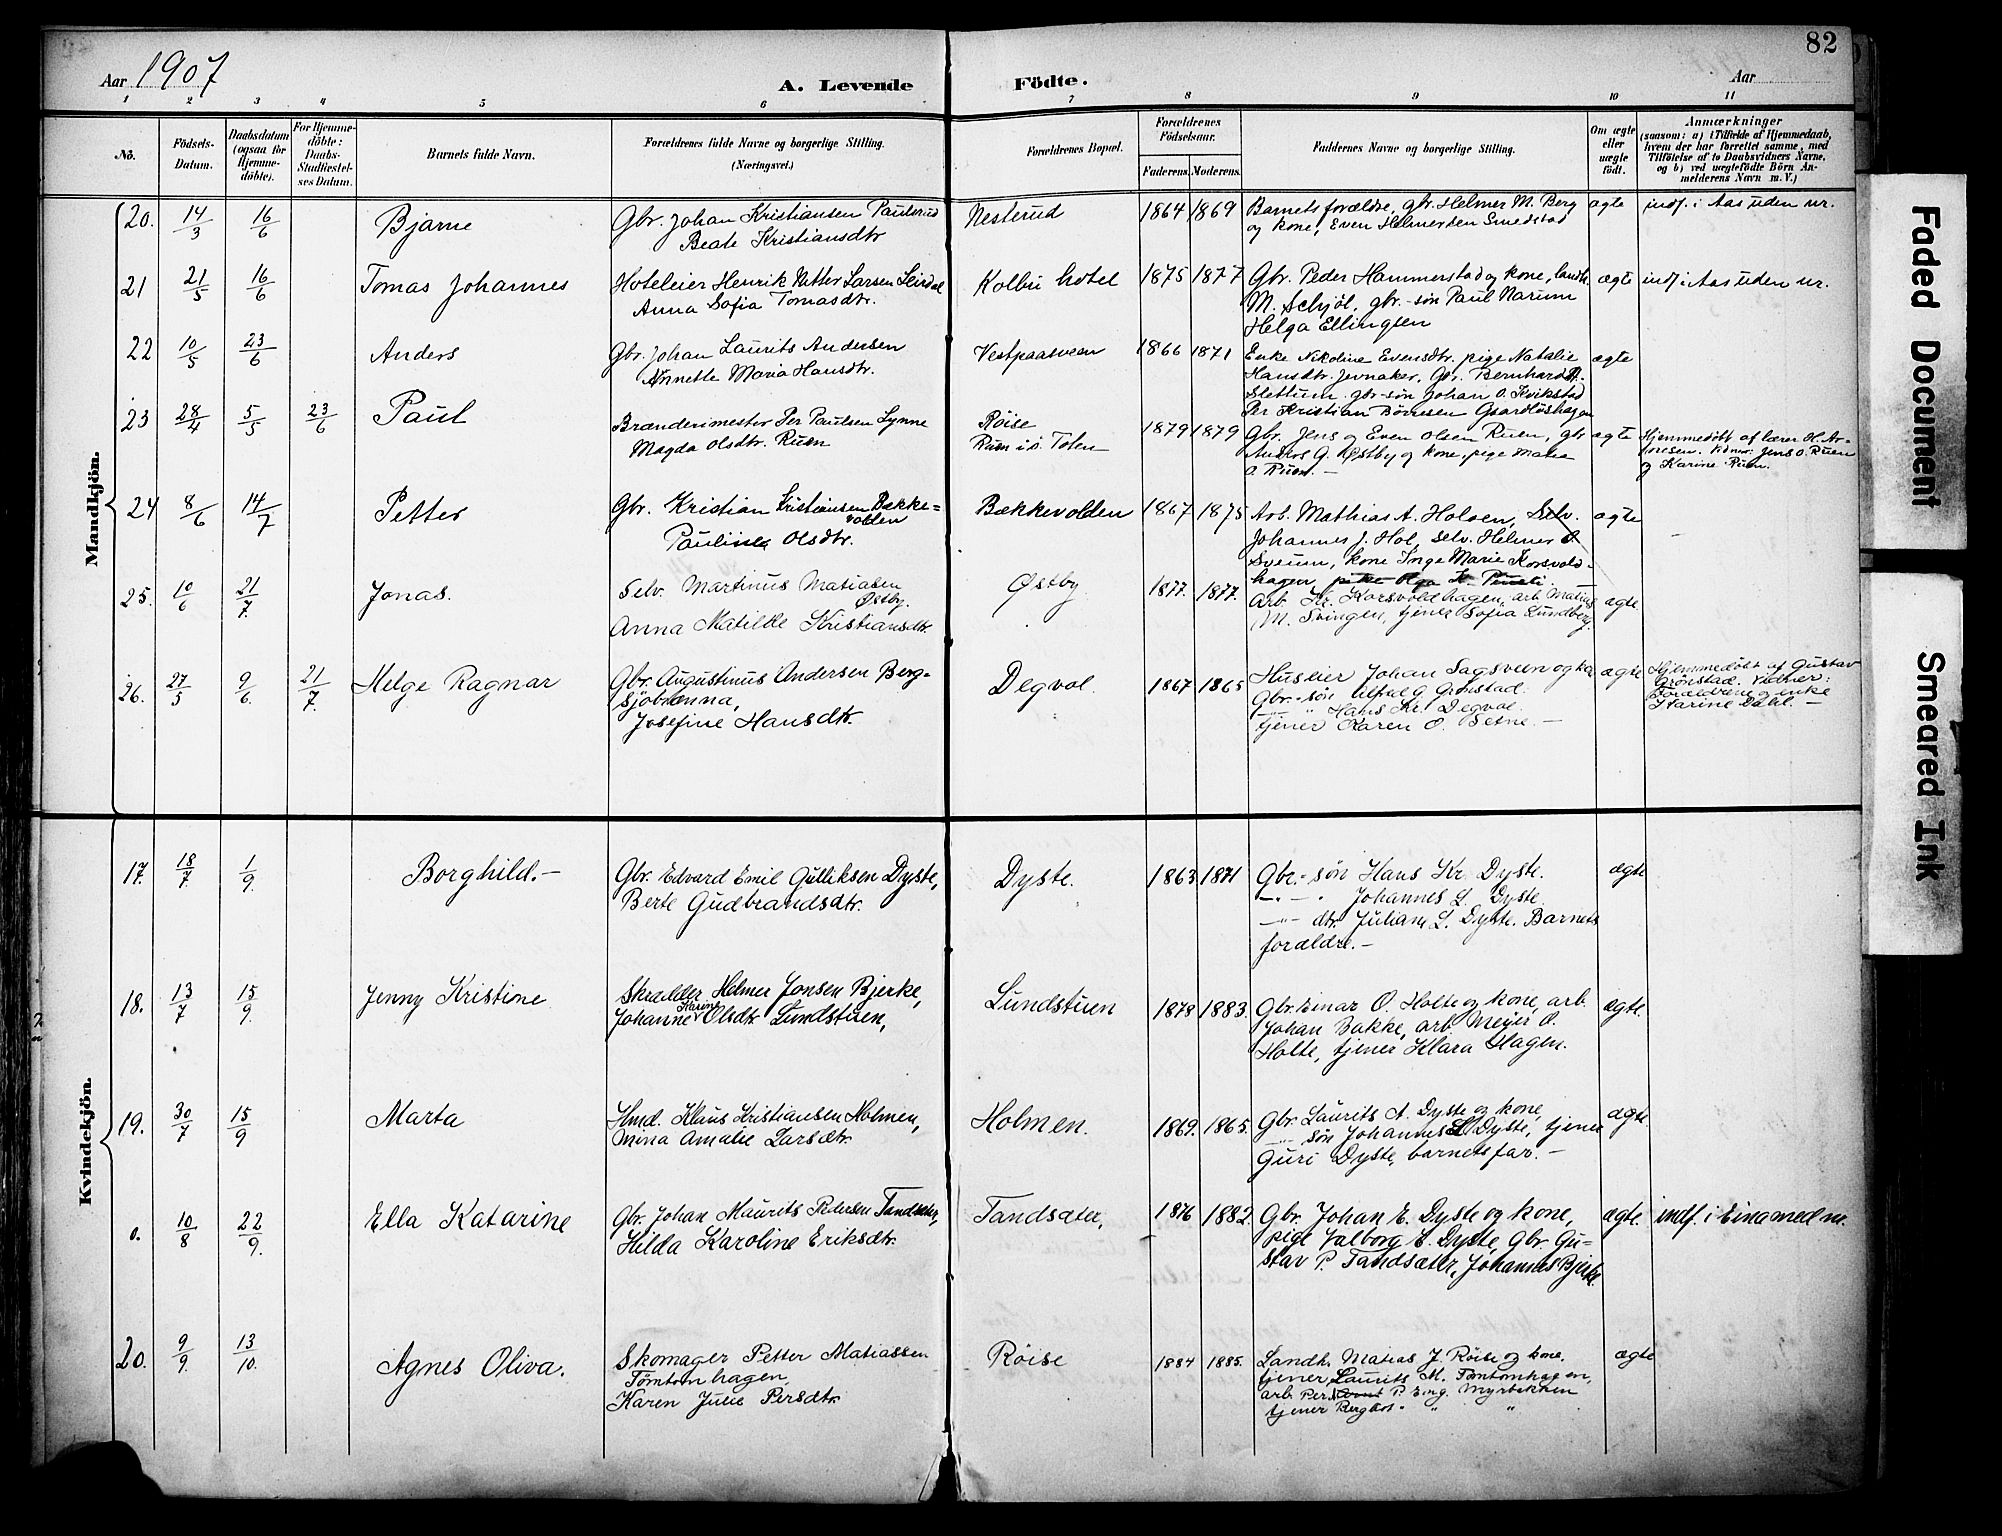 82
Aar 1907
A. Levende
Födte.
Aar
1 2 3 4 5 6 7 8 9 10 11
No.
Födsels-
Datum.
Daabsdatum
(ogsaa for
Hjemme-
döbte).
For Hjemme-
döbte:
Daabs-
Stadfæstel-
ses Datum.
Barnets fulde Navn.
Forældrenes fulde Navne og borgerlige Stilling.
(Næringsvei.)
Forældrenes Bopæl.
Forældrenes
Födselsaar.
Faderens.
Moderens.
Faddernes Navne og borgerlige Stilling.
Om ægte
eller
uægte
födt.
Anmærkninger
(saasom: a) i Tilfælde af Hjemmedaab,
hvem der har forrettet samme, med
Tilföielse af to Daabsvidners Navne,
og b) ved uægtefödte Börn An-
melderens Navn m. V.)
Mandkjön.
20. 14/3 16/6 Bjarne
Gbr. Johan Kristiansen Paulsrud
Beate Kristiansdtr
Nesterud
1864 1869
Barnets forældre, gbr. Helmer M. Berg
og kone, Even Helmersen Smedstad
ægte
indf. i Aas uden nr.
21 21/5 16/6 Tomas Johannes
Hoteleier Henrik Petter Larsen
Anna Sofia Tomasdtr.
Kolbu hotel
1875 1877
Gbr. Peder Hammerstad og kone, landh.
M. Schjöl, gbr.-søn Paul Narum
Helga Ellingsen
ægte
indf. i Aas uden nr.
22 10/5 23/6 Anders
Gbr. Johan Laurits Andersen
Annette Maria Hansdtr.
Vestpaasveen
1866 1871
Enke Nikoline Evensdtr. pige Natalie
Hansdtr. Jevnaker, Gbr. Bernhard A.
Slettum. gbr-søn Johan O. Kvikstad
Per Kristian Börresen
ægte
23 28/4 5/5 23/6 Paul
Brænderimester Per Paulsen Lynne
Magda Olsdtr. Ruen
Røise
Ruen i ö. Toten
1879 1879
Gbr. Jens og Even Olsen Ruen, gbr
Anders G. Østby og kone, pige Matea
O Ruen. —
ægte
Hjemmedöbt af lærer H. Ar-
nesen. Vidner: Jens O. Ruen
og Karine Ruen.
24 8/6 14/7 Petter
Gbr. Kristian Kristiansen Bække=
volden
Pauline Olsdtr.
Bækkevolden
1867 1875
Arb. Mathias A. Holsen, Selv.
Johannes J. Hol, selv. Helmer O.
Sveum, kone Inge Marie Korsvold-
hagen,
ægte
25. 10/6 21/7. Jonas.
Selv. Martinus Matiasen
Østby.
Anna Matilde Kristiansdtr.
Østby
1877. 1877.
Arb. Kr. Korsvoldhagen, arb Matias
M. Svingen, tjener Sofia Lundberg.
ægte
26. 27/5 9/6. 21/7. Helge Ragnar
Gbr. Augustinus Andersen Berg-
Sjöbrænna,
Josefine Hansdtr.
Degvol.
1867 1865
Huseier Johan Sagsveen og ka
Gbr.-søn Alfred G. Grönstad.
— " — Hans Kr. Degvol.
tjener Karen O. Setne. —
ægte
Hjemmedöbt af Gustav
Grönstad. Vidner:
Forældrene og enke
Karine Dahl. —
Kvindekjön.
17. 18/7. 1/9. Borghild. —
Gbr. Edvard Emil Gulliksen Dyste,
Berte Gudbrandsdtr.
Dyste.
1863 1871
Gbr.-søn Hans Kr. Dyste.
— " — " Johannes L. Dyste.
— " — dtr. Juliane L. Dyste. Barnets
forældre. —
ægte
18. 13/7 15/9. Jenny Kristine
Skrædder Helmer Jonsen Bjerke,
Karine
Johanne Olsdtr. Lundstuen,
Lundstuen
1878 1883.
Gbr. Einar O. Holte og kone, arb.
Johan Bakke, arb. Meyer O.
Holte, tjener Klara Hagen.
ægte.
19. 30/7 15/9 Marta
Hmd. Klaus Kristiansen Holmen,
Mina Amalie Larsdtr.
Holmen.
1869. 1865.
Gbr. Laurits A. Dyste og kone,
— " — søn Johannes L Dyste, tjener
Guri Dyste, barnets far. —
ægte
0. 10/8 22/9. Ella Katarine
Gbr. Johan Maurits Pedersen Tandsæter,
Hilda Karoline Eriksdtr.
Tandsæter,
1876 1882.
Gbr. Johan E. Dyste og kone,
pige Valborg E. Dyste, Gbr. Gu=
stav P. Tandsæter, Johannes Bjerke.
ægte.
indf. i Eina med nr.
20. 9/9. 13/10. Agnes Oliva.
Skomager Petter Matiassen
Tömtomhagen,
Karen Julie Persdtr.
Röise
1884 1885.
Landh. Matias J. Röise og kone,
tjener Laurits M. Tömtomhagen,
arb. Per P. Eng. Myrbakken
tjener Bergliot " " "
ægte
Faded Document
Smeared Ink